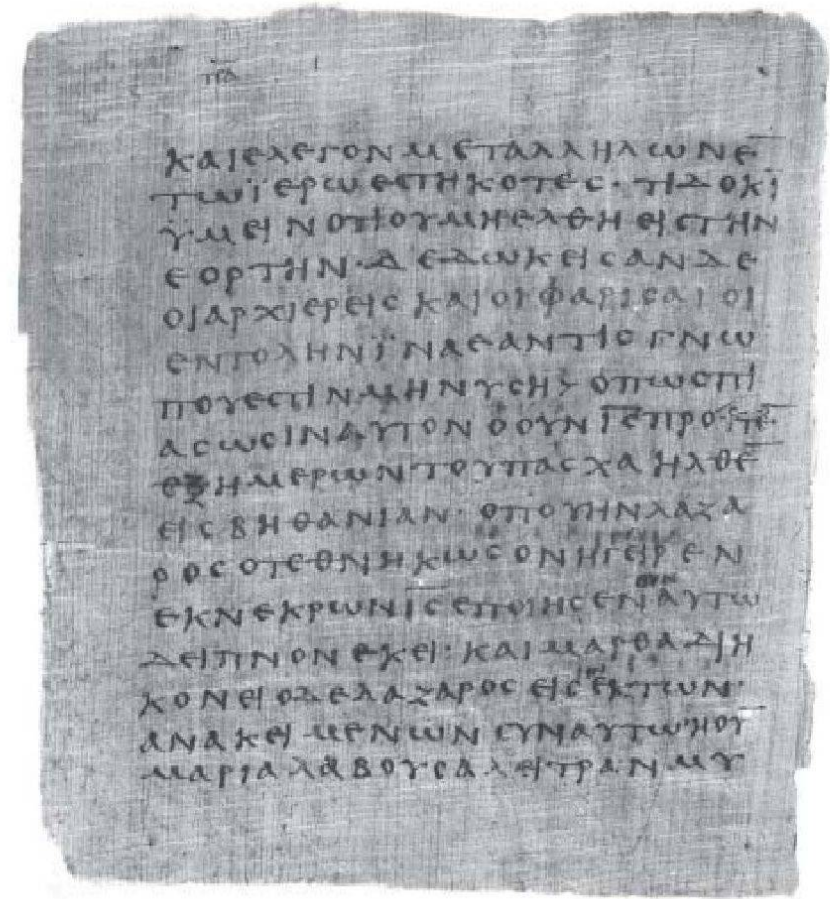 πα
καιελεγονμεταλληλωνε̅
τωϊερωεστηκοτες· τιδοκι
ϋμεινοτιουμηελθηειστην
εορτην· δεδωκεισανδε
οιαρχιερειςκαιοιφαρισαιοι
εντοληνϊναεαντιςγνω
πουεστινμηνυση› οπωςπι
ασωσιναυτον οουνι̅ς̅προ
εξημερωντουπασχαηλθε̅
ειςβηθανιαν· οπουηνλαζα
ροςοτεθνηκωςονηγειρεν
εκνεκρωνι̅ς̅εποιησεν ουν αυτω
δειπνονεκει· καιμαρθαδιη
κονειοδελαζαροςειςεκτων·
ανακειμενωνσυναυτωηου̅
μαριαλαβουσαλειτρανμυ